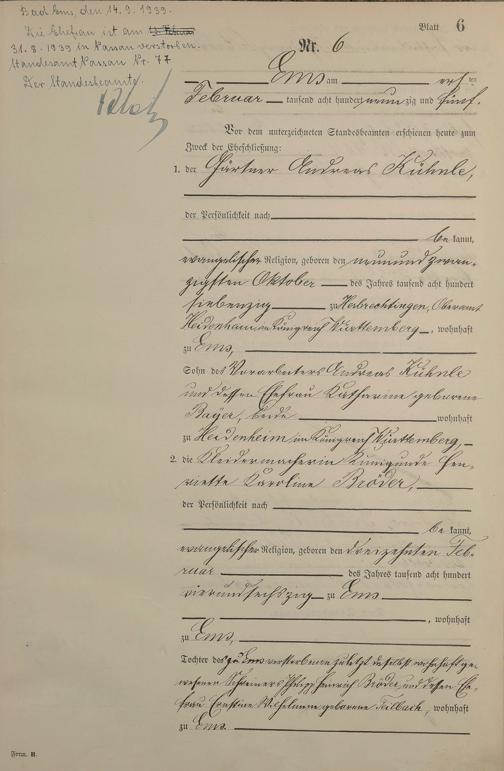 Bad Ems, den 14. 9. 1939.
Die Ehefrau ist am
31. 8. 1939 in Passau verstorben.
Standesamt Passau Nr. 77
Der Standesbeamte.
Blatt 6
Nr. 6
Ems am ersten
Februar tausend acht hundert neunzig und fünf.
Vor dem unterzeichneten Standesbeamten erschienen heute zum
Zweck der Eheschließung:
1. der Gärtner Andreas Kühnle,
der Persönlichkeit nach
bekannt,
evangelischer Religion, geboren den neunundzwan-
zigsten Oktober des Jahres tausend acht hundert
siebenzig zu Herbrechtingen, Oberamt
Heidenheim im Königreich Württemberg, wohnhaft
zu Ems,
Sohn des Vorarbeiters Andreas Kühnle
und dessen Ehefrau Katharine geborene
Bayer, beide wohnhaft
zu Heidenheim im Königreich Württemberg,
2. die Kleidermacherin Kunigunde Hen-
riette Karoline Bröder,
der Persönlichkeit nach
bekannt,
evangelischer Religion, geboren den dreizehnten Feb-
ruar des Jahres tausend acht hundert
vierundsechszig zu Ems
, wohnhaft
zu Ems,
Tochter des zu Ems verstorbenen zuletzt daselbst wohnhaft ge-
wesenen Schreiners Philipp Heinrich Bröder und dessen Ehe-
frau Ernstine Wilhelmine geborene Filbach, wohnhaft
zu Ems.
Form. B.